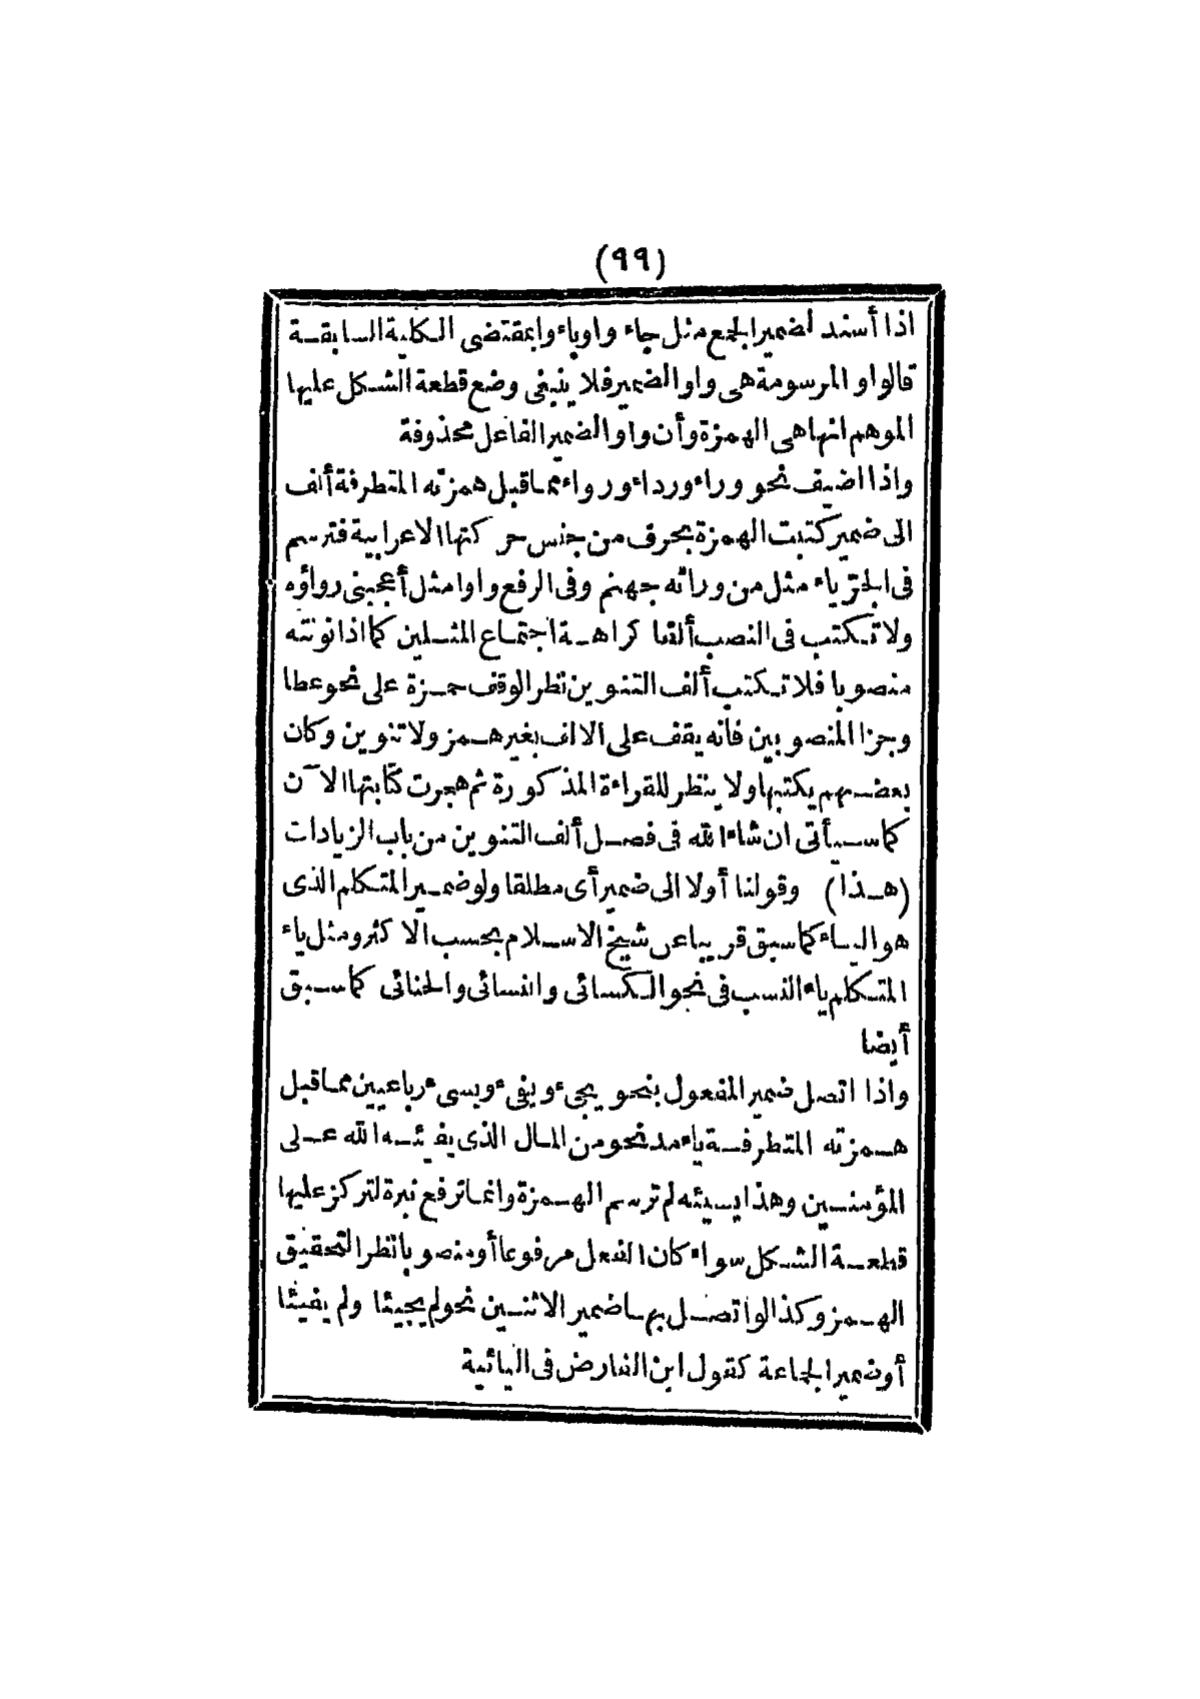 (٩٩)
اذا أسند لضمير الجمع مثل جاء وا وباء وا بمقتضى الكلية السابقة
فالواو المرسومة هى واو الضمير فلا ينبغى وضع قطعة الشكل عليها
الموهم انها هى الهمزة وأن واو الضمير الفاعل محذوفة
واذا اضيف نحو وراء ورداء ورواء مما قبل همزته المتطرفة ألف
الى ضمير كتبت الهمزة بحرف من جنس حركتها الاعرابية فترسم
فى الجر ياء مثل من ورائه جهنم وفى الرفع واوا مثل أعجبنى رواؤه
ولا تكتب فى النصب ألفا كراهة اجتماع المثلين كما اذا نونته
منصوبا فلا تكتب ألف التنوين نظر الوقف حمزة على نحو عطا
وجزا المنصوبين فانه يقف على الالف بغير همز ولا تنوين وكان
بعضهم يكتبها ولا ينظر للقراءة المذكورة ثم هجرت كتابتها الآن
كما سيأتى ان شاء الله فى فصل ألف التنوين من باب الزيادات
(هذا) وقولنا أولا الى ضمير أى مطلقا ولو ضمير المتكلم الذى
هو الياء كما سبق قريبا عن شيخ الاسلام بحسب الاكثر ومثل ياء
المتكلم ياء النسب فى نحو الكسائى والنسائى والحنائى كما سبق
أيضا
واذا اتصل ضمير المفعول بنحو يجىء ويفىء ويسىء رباعيين مما قبل
همزته المتطرفة ياء مد نحو من المال الذى يفيئه الله على
المؤمنين وهذا يسيئه لم ترسم الهمزة وانما ترفع نبرة لتركز عليها
قطعة الشكل سواء كان الفعل مرفوعا أو منصوبا نظر التحقيق
الهمز وكذا لو اتصل بها ضمير الاثنين نحو لم يجيئا ولم يفيئا
أو ضمير الجماعة كقول ابن الفارض فى اليائية